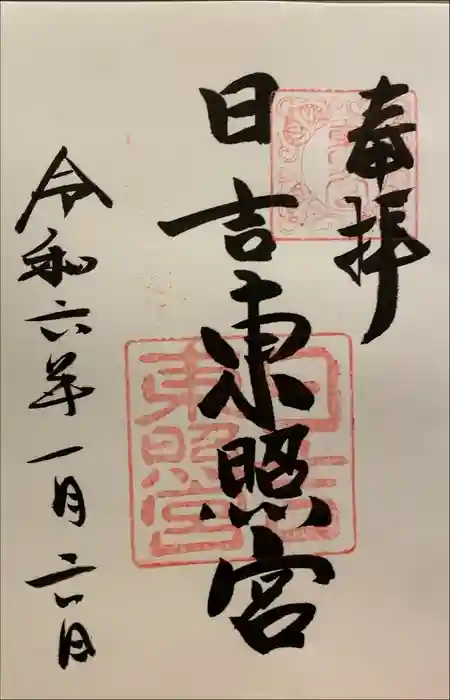 奉拝
日吉東照宮
日吉東照宮
令和六年一月二八日